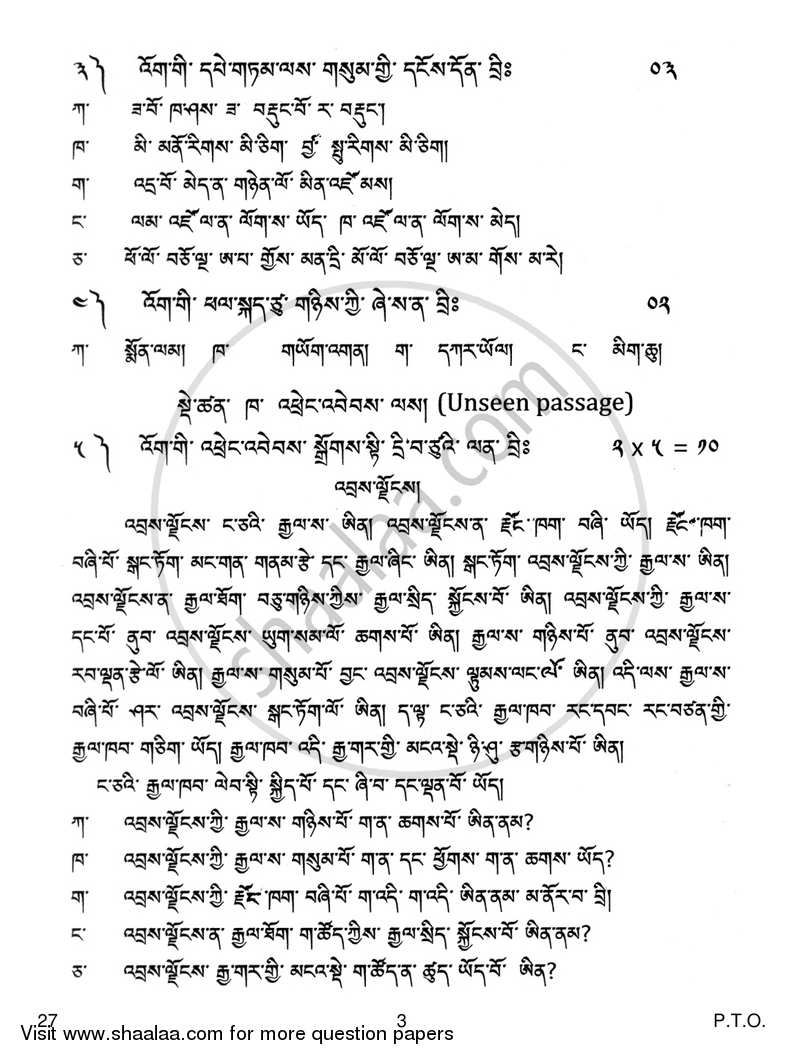 ༣༽ འོག་གི་ དཔེ་གཏམ་ལས་ གསུམ་གྱི་ དངོས་དོན་ བྲིཿ ༠༣
ཀ་ ཟ་བོ་ ཁ་ཤས་ ཟ་ བརྡུང་བོ་ ར་ བརྡུང།
ཁ་ མི་ མནོ་རིགས་ མི་ཅིག་ བྱཱ་ སྤུ་རིགས་ མི་ཅིག།
ག་ འདྲ་བོ་ མེད་ན་ གཉེན་ལོ་ མིན་འཛོམས།
ང་ ལམ་ འཛོལ་ན་ ལོག་ས་ ཡོད་ ཁ་ འཛོལ་ན་ ལོག་ས་ མེད།
ཅ་ ཕོ་ལོ་ བཅོ་ལྔ་ ཨ་པ་ གྱོས་ མན་དྲི་ མོ་ལོ་ བཅོ་ལྔ་ ཨ་མ་ གོས་ མ་རེ།
༤༽ འོག་གི་ ཕལ་སྐད་ཙུ་ གཉིས་ཀྱི་ ཞེ་ས་ན་ བྲིཿ ༠༢
ཀ་ སྨོན་ལམ། ཁ་ གཡོག་འགན། ག་ དཀར་ཡོལ། ང་ མིག་ཆུ།
སྡེ་ཚན་ ཁ་ འཕྲེང་འབེབས་ ལས། (Unseen passage)
༥༽ འོག་གི་ འཕྲེང་འབེབས་ སྒྲོགས་སྟི་ དྲི་བ་ཙུའི་ ལན་ བྲིཿ ༢ x ༥ = ༡༠
འབྲས་ལྗོངས།
འབྲས་ལྗོངས་ ང་ཅའི་ རྒྱལ་ས་ ཨིན། འབྲས་ལྗོངས་ན་ རྫོང་ཁག་ བཞི་ ཡོད། རྫོང་ཁག་
བཞི་པོ་ སྒང་ཏོག་ མང་གན་ གནམ་རྩེ་ དང་ རྒྱལ་ཞིང་ ཨིན། སྒང་ཏོག་ འབྲས་ལྗོངས་ཀྱི་ རྒྱལ་ས་ ཨིན།
འབྲས་ལྗོངས་ན་ རྒྱལ་ཐོག་ བཅུ་གཉིས་ཀྱིས་ རྒྱལ་སྲིད་ སྐྱོངས་བོ་ ཨིན། འབྲས་ལྗོངས་ཀྱི་ རྒྱལ་ས་
དང་པོ་ ནུབ་ འབྲས་ལྗོངས་ ཡུག་སམ་ལོ་ ཆགས་པོ་ ཨིན། རྒྱལ་ས་ གཉིས་པོ་ ནུབ་ འབྲས་ལྗོངས་
རབ་ལྡན་རྩེ་ལོ་ ཨིན། རྒྱལ་ས་ གསུམ་པོ་ བྱང་ འབྲས་ལྗོངས་ ལྷུམས་ལང་ལོ་ ཨིན། འདི་ལས་ རྒྱལ་ས་
བཞི་པོ་ ཤར་ འབྲས་ལྗོངས་ སྒང་ཏོག་ལོ་ ཨིན། ད་ལྟ་ ང་ཅའི་ རྒྱལ་ཁབ་ རང་དབང་ རང་བཙན་གྱི་
རྒྱལ་ཁབ་ གཅིག་ ཡོད། རྒྱལ་ཁབ་ འདི་ རྒྱ་གར་གྱི་ མངའ་སྡེ་ ཉི་ཤུ་ རྩ་གཉིས་པོ་ ཨིན།
ང་ཅའི་ རྒྱལ་ཁབ་ ལེབ་སྟི་ སྐྱིད་པོ་ དང་ ཞི་བ་ དང་ལྡན་བོ་ ཡོད།
ཀ་ འབྲས་ལྗོངས་ཀྱི་ རྒྱལ་ས་ གཉིས་པོ་ ག་ན་ ཆགས་པོ་ ཨིན་ནམ?
ཁ་ འབྲས་ལྗོངས་ཀྱི་ རྒྱལ་ས་ གསུམ་པོ་ ག་ན་ དང་ ཕྱོགས་ ག་ན་ ཆགས་ ཡོད?
ག་ འབྲས་ལྗོངས་ཀྱི་ རྫོང་ཁག་ བཞི་པོ་ ག་འདི་ ག་འདི་ ཨིན་ནམ་ མ་ནོར་བ་ བྲི།
ང་ འབྲས་ལྗོངས་ན་ རྒྱལ་ཐོག་ ག་ཚོད་ཀྱིས་ རྒྱལ་སྲིད་ སྐྱོངས་བོ་ ཨིན་ནམ?
ཅ་ འབྲས་ལྗོངས་ རྒྱ་གར་གྱི་ མངའ་སྡེ་ ག་ཚོད་ན་ ཚུད་ ཡོད་བོ་ ཨིན?
27 3 P.T.O.
Visit www.shaalaa.com for more question papers
shaalaa.com